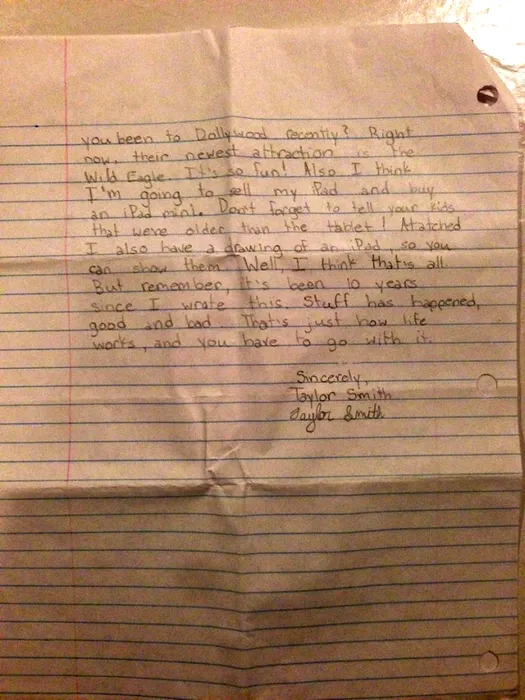 you been to Dollywood recently? Right
now, their newest attraction is the
Wild Eagle. It's so fun! Also I think
I'm going to sell my iPad and buy
an iPad mini. Don't forget to tell your kids
that we're older than the tablet! Atatched
I also have a drawing of an iPad, so you
can show them. Well, I think that's all.
But remember, it's been 10 years
since I wrote this. Stuff has happened,
good and bad. That's just how life
works, and you have to go with it.
Sincerely,
Taylor Smith
Taylor Smith